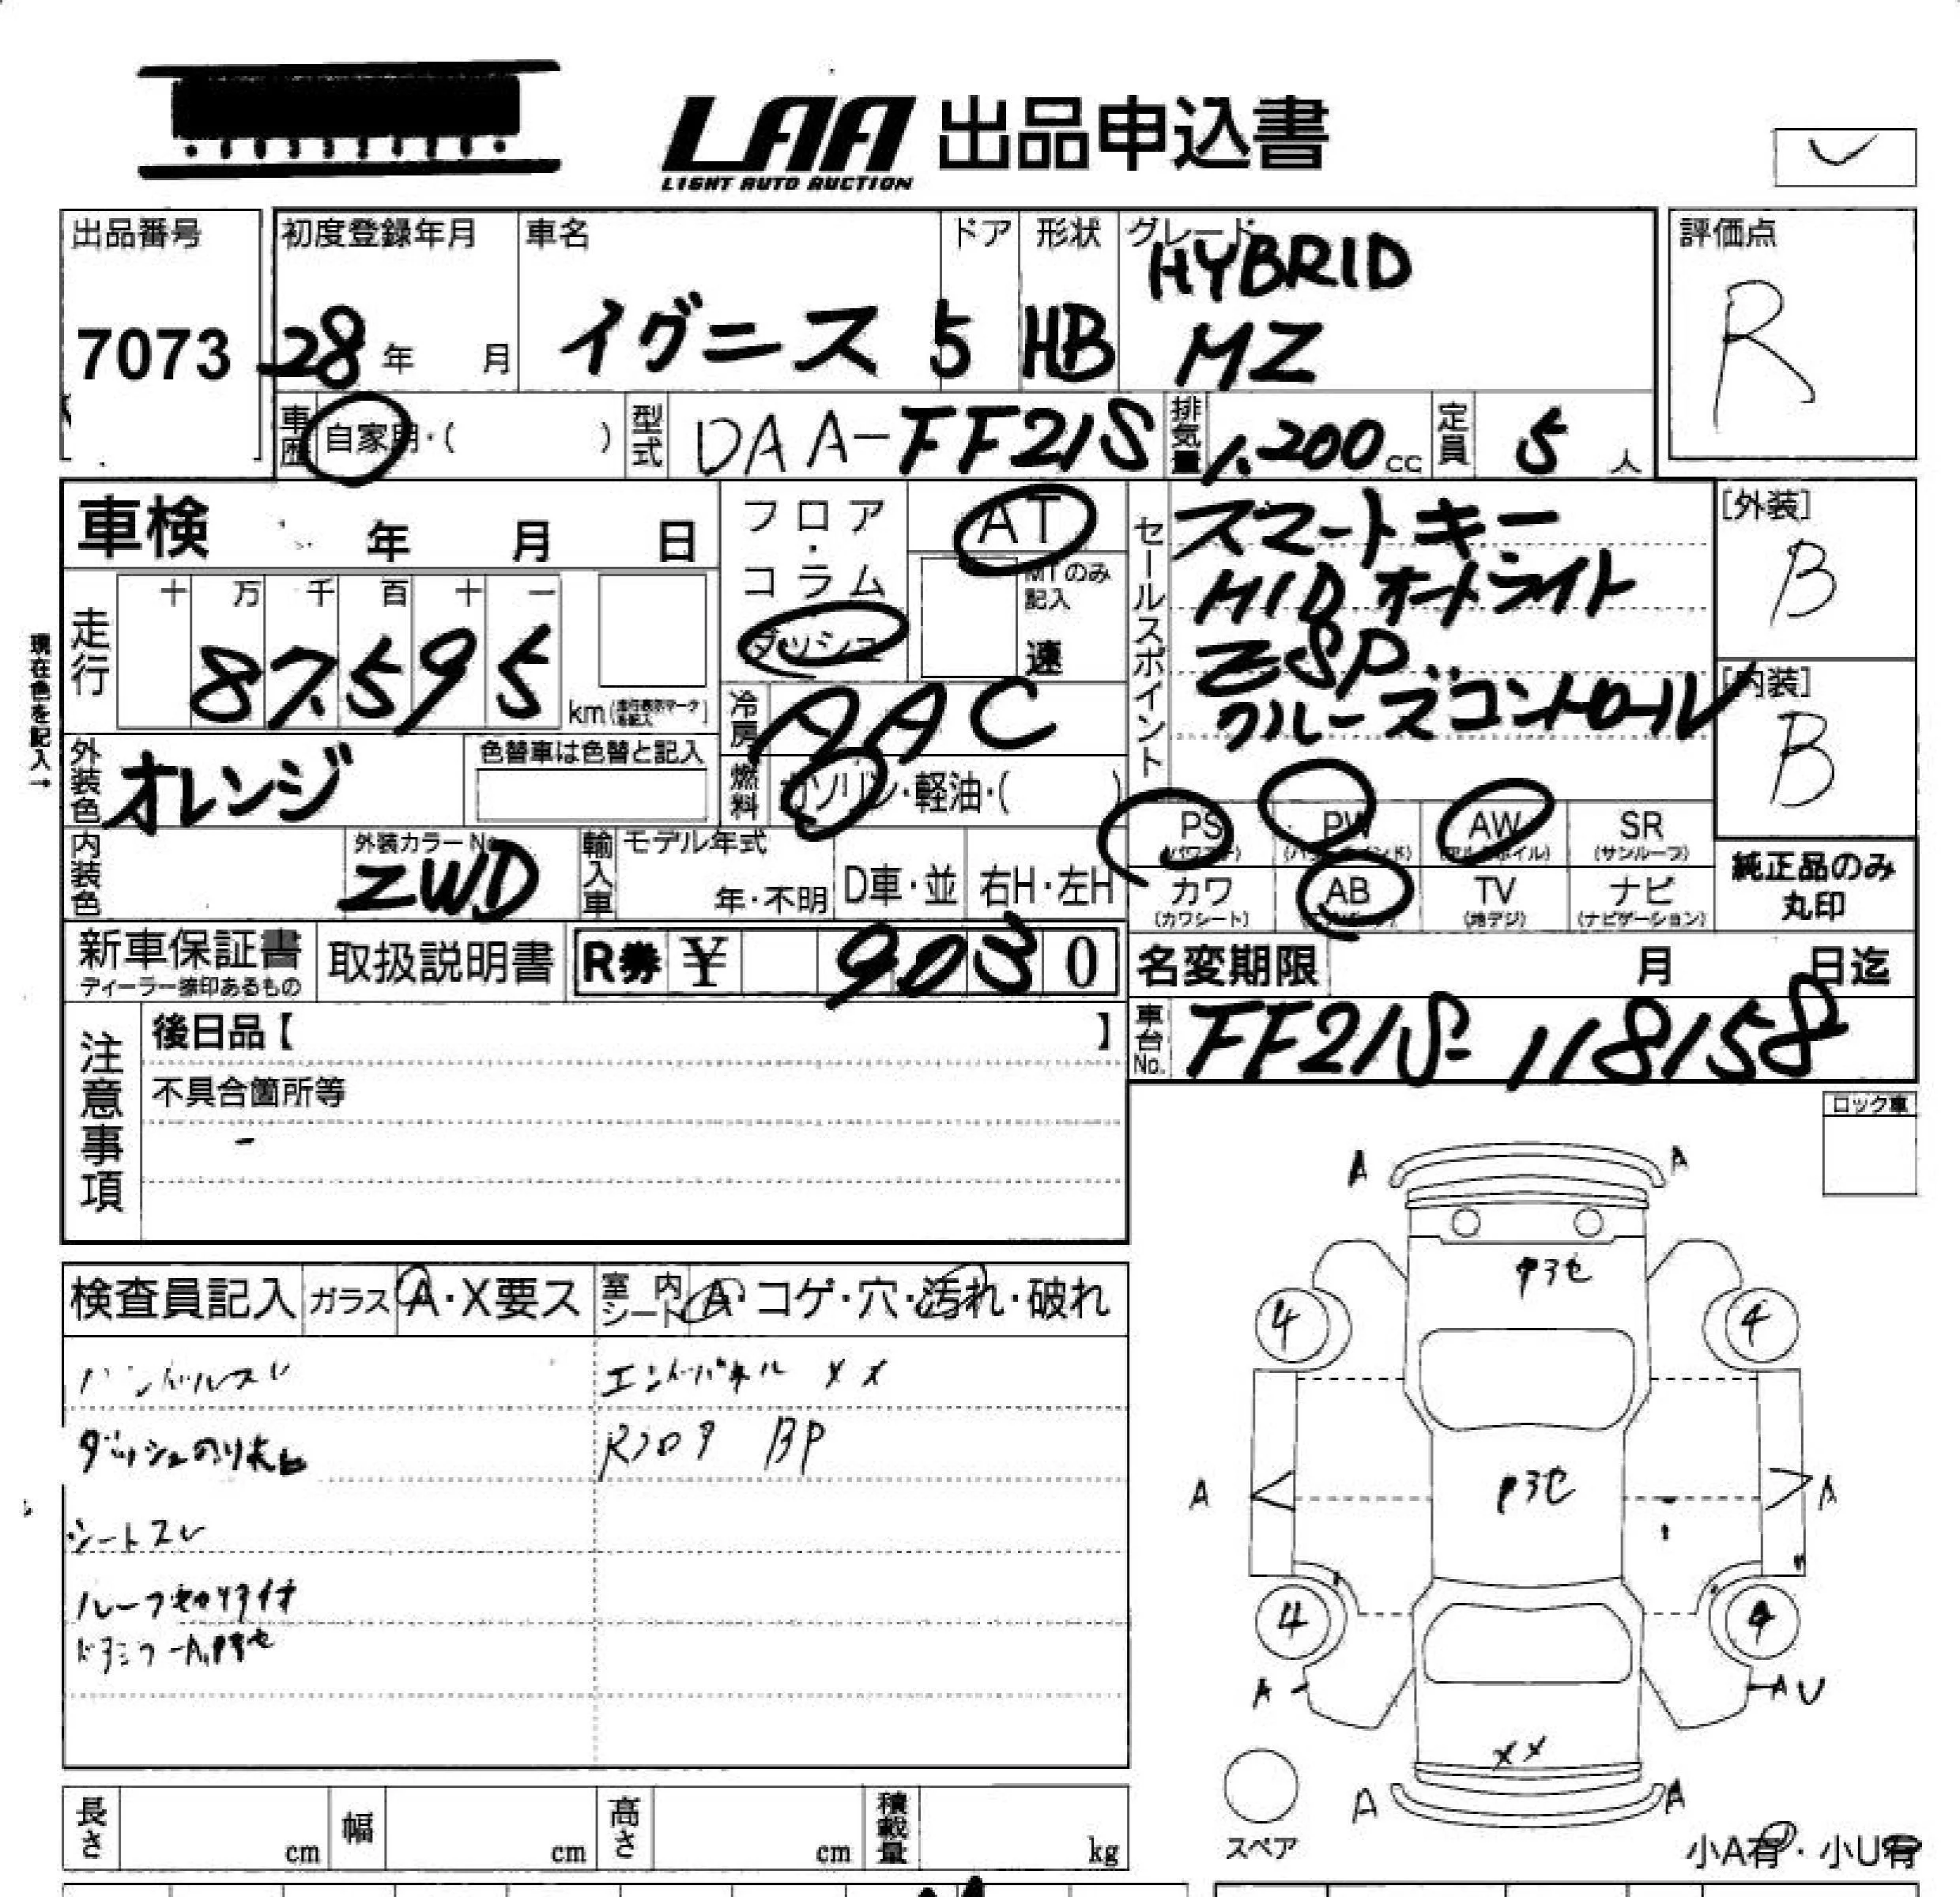 LAA 出品申込書
LIGHT AUTO AUCTION
出品番号
7073
初度登録年月
28 年 月
車名
イグニス
ドア
5
形状
HB
グレード
HYBRID
MZ
評価点
R
車歴 自家用・( )
型式 DAA-FF21S
排気量 1.200 cc
定員 5 人
車検 年 月 日
フロア・コラム
ダッシュ
AT
MTのみ記入
速
セールスポイント
スマートキー
HID オートライト
ESP
クルーズコントロール
[外装]
B
[内装]
B
現在色を記入→
走行
十 万 千 百 十 一
87.595
km
冷房 AAC
外装色 オレンジ
色替車は色替と記入
燃料 ガソリン・軽油・( )
内装色
外装カラーNo.
ZWD
輸入車
モデル年式
年・不明
D車・並
右H・左H
PS
PW
AW
(アルミホイル)
SR
(サンルーフ)
カワ
(カワシート)
AB
TV
(地デジ)
ナビ
(ナビゲーション)
純正品のみ
丸印
新車保証書
ディーラー捺印あるもの
取扱説明書
R券 ¥ 9030
名変期限 月 日迄
車台No. FF21S-118158
注意事項
後日品【 】
不具合箇所等
ロック車
検査員記入
ガラス A・X要ス
室内シート A・コゲ・穴・汚れ・破れ
ハンドルスレ
エンドパネル XX
ダッシュのり末占
Rフロア BP
シートスレ
A A
4 4
A A
4 4
A AU
XX
A A
スペア
小A有・小U有
長さ cm
幅 cm
高さ cm
積載量 kg